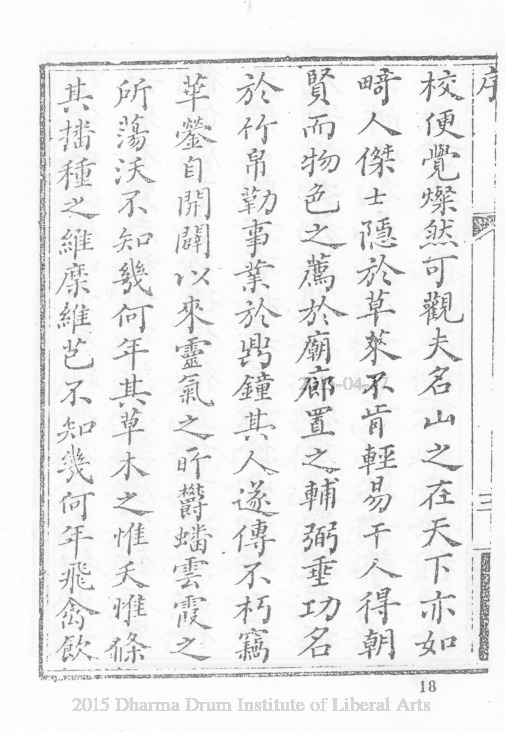 序
三
校便覺燦然可觀夫名山之在天下亦如
畸人傑士隱於草萊不肯輕易干人得朝
賢而物色之薦於廟廊置之輔弼垂功名
於竹帛勒事業於鼎鐘其人遂傳不朽竊
華鎣自開闢以來靈氣之所鬱蟠雲霞之
所蕩沃不知幾何年其草木之惟夭惟條
其播種之維穈維芑不知幾何年飛禽飲
18
2015 Dharma Drum Institute of Liberal Arts